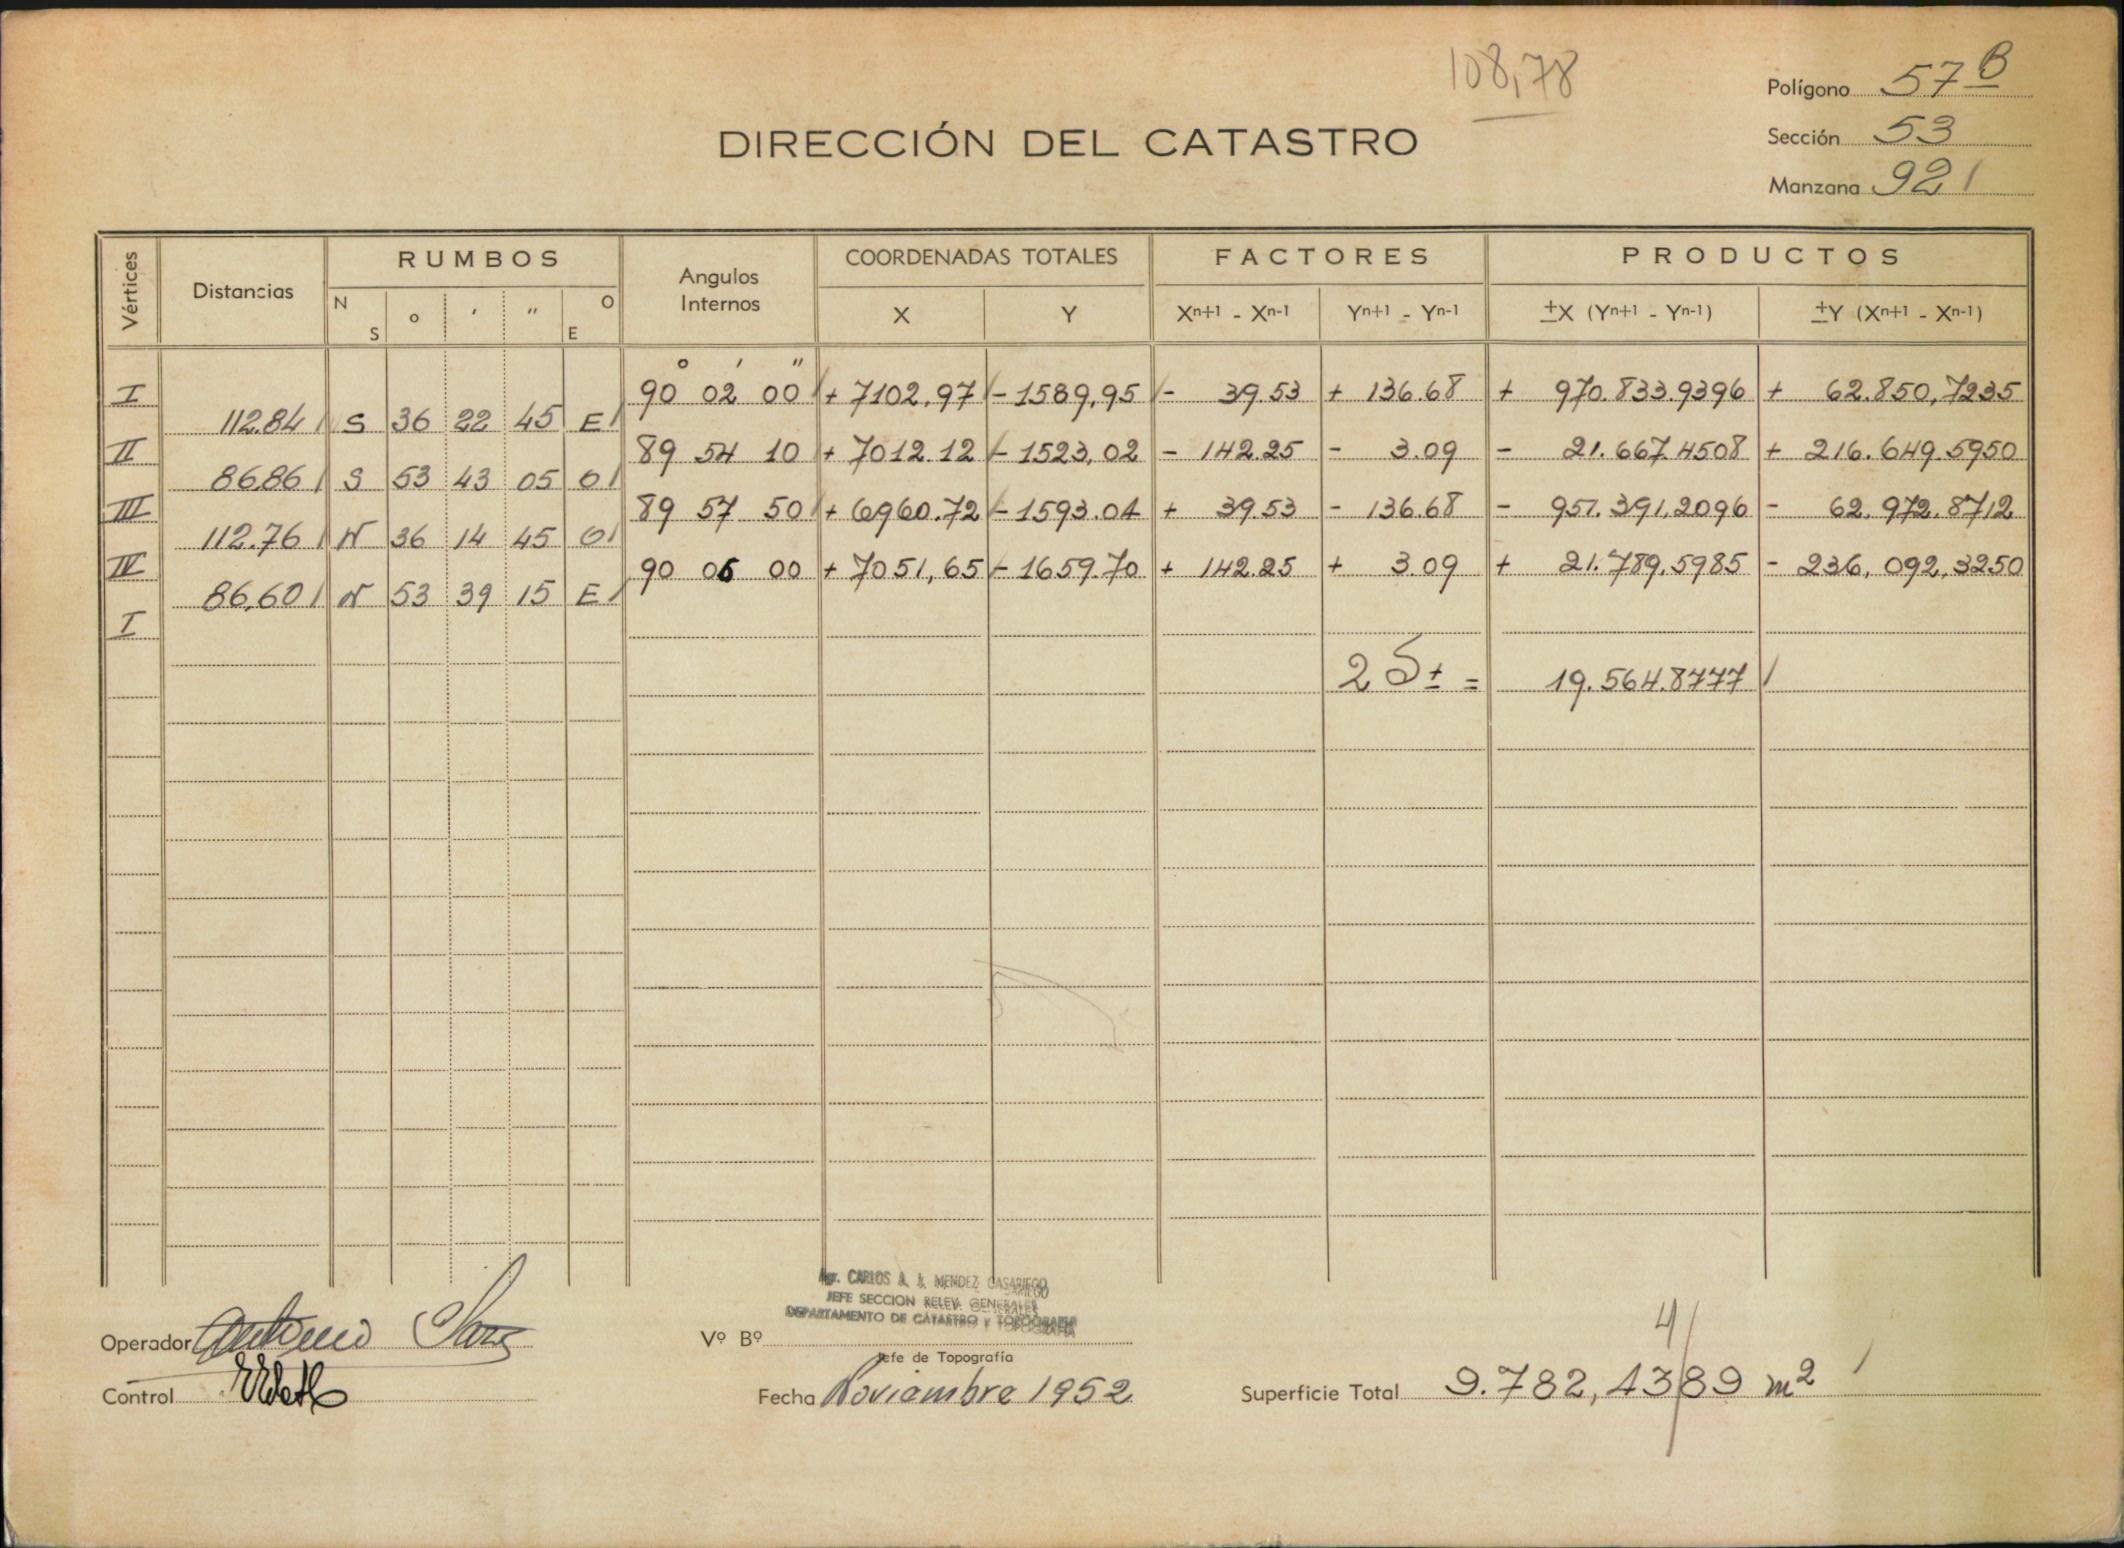 108,78
Polígono 57 B
DIRECCIÓN DEL CATASTRO
Sección 53
Manzana 921
Vértices Distancias RUMBOS Angulos Internos COORDENADAS TOTALES FACTORES PRODUCTOS
N S o ' " O E X Y Xn+1 - Xn-1 Yn+1 - Yn-1 ±X (Yn+1 - Yn-1) ±Y (Xn+1 - Xn-1)
o ' "
I 90 02 00 + 7102,97 - 1589,95 - 39.53 + 136.68 + 970.833.9396 + 62.850,7235
112.84 S 36 22 45 E
II 89 54 10 + 7012.12 - 1523,02 - 142.25 - 3.09 - 21.667.4508 + 216.649.5950
86.86 S 53 43 05 O
III 89 57 50 + 6960.72 - 1593.04 + 39.53 - 136.68 - 951.391,2096 - 62.972.8712
112.76 N 36 14 45 O
IV 90 06 00 + 7051,65 - 1659.70 + 142.25 + 3.09 + 21.789,5985 - 236,092,3250
86,60 N 53 39 15 E
I
2 S ± = 19.564.8777
Agr. CARLOS A. J. MENDEZ CASARIEGO
JEFE SECCION RELEV. GENERALES
DEPARTAMENTO DE CATASTRO Y TOPOGRAFIA
Operador Antonio
Vº Bº
Jefe de Topografía
Control
Fecha Noviembre 1952
4
Superficie Total 9.782,4389 m2